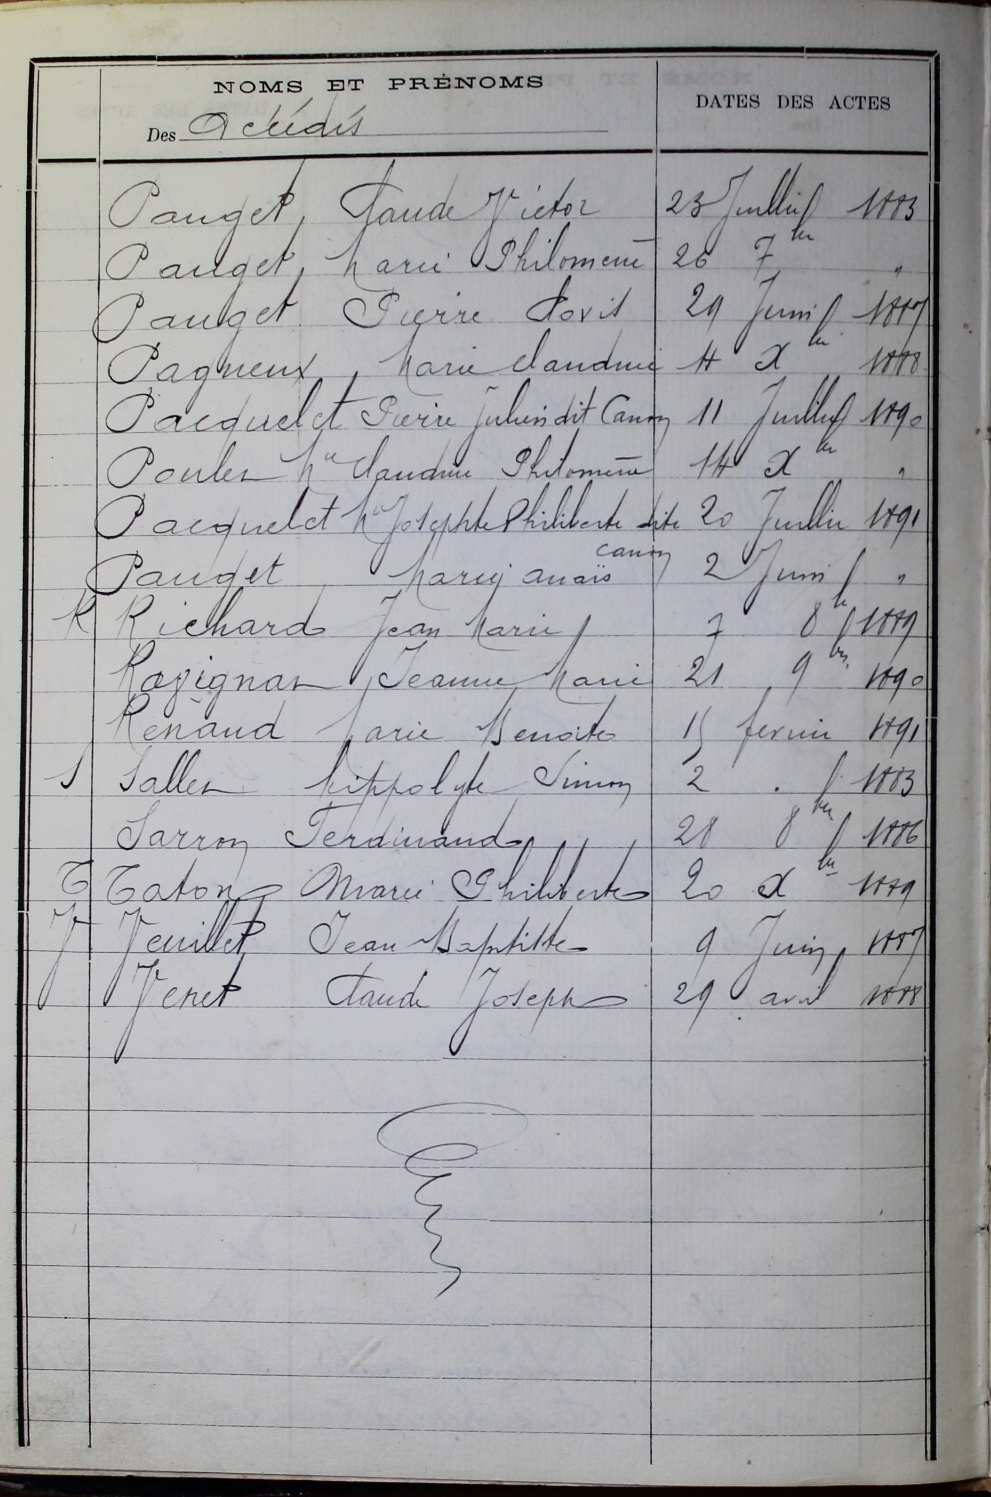 NOMS ET PRÉNOMS
DATES DES ACTES
Des Décédés
Pauget Claude Victor 23 Juillet 1883
Pauget Marie Philomène 26 7bre "
Pauget Pierre Clovis 29 Juin 1887
Pagneux Marie Claudine 4 Xbre 1888
Pacquelet Pierre Julien dit Canon 11 Juillet 1890
Poulet Mie Claudine Philomène 14 Xbre "
Pacquelet Mie Josephte Philiberte dite 20 Juillet 1891
Canon
Pauget Marie anaïs 2 Juin "
R Richard Jean Marie 7 8bre 1889
Ravignan Jeanne Marie 21 9bre 1890
Renaud Marie Benoite 15 fevrier 1891
S Salles hippolyte Simon 2 . 1883
Sarron Ferdinand 28 8bre 1886
T Taton Marie Philiberte 20 Xbre 1889
V Veuillet Jean Baptiste 9 Juin 1887
Veret Claude Joseph 29 avril 1888